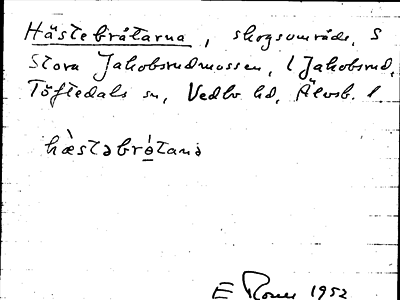 Hästebråtarna, skogsområde, S
Stora Jakobsrudmossen, l Jakobsrud,
Töftedals sn, Vedbo hd, Älvsb. l
hæ̀stəbrɵ́tanə
E 1952